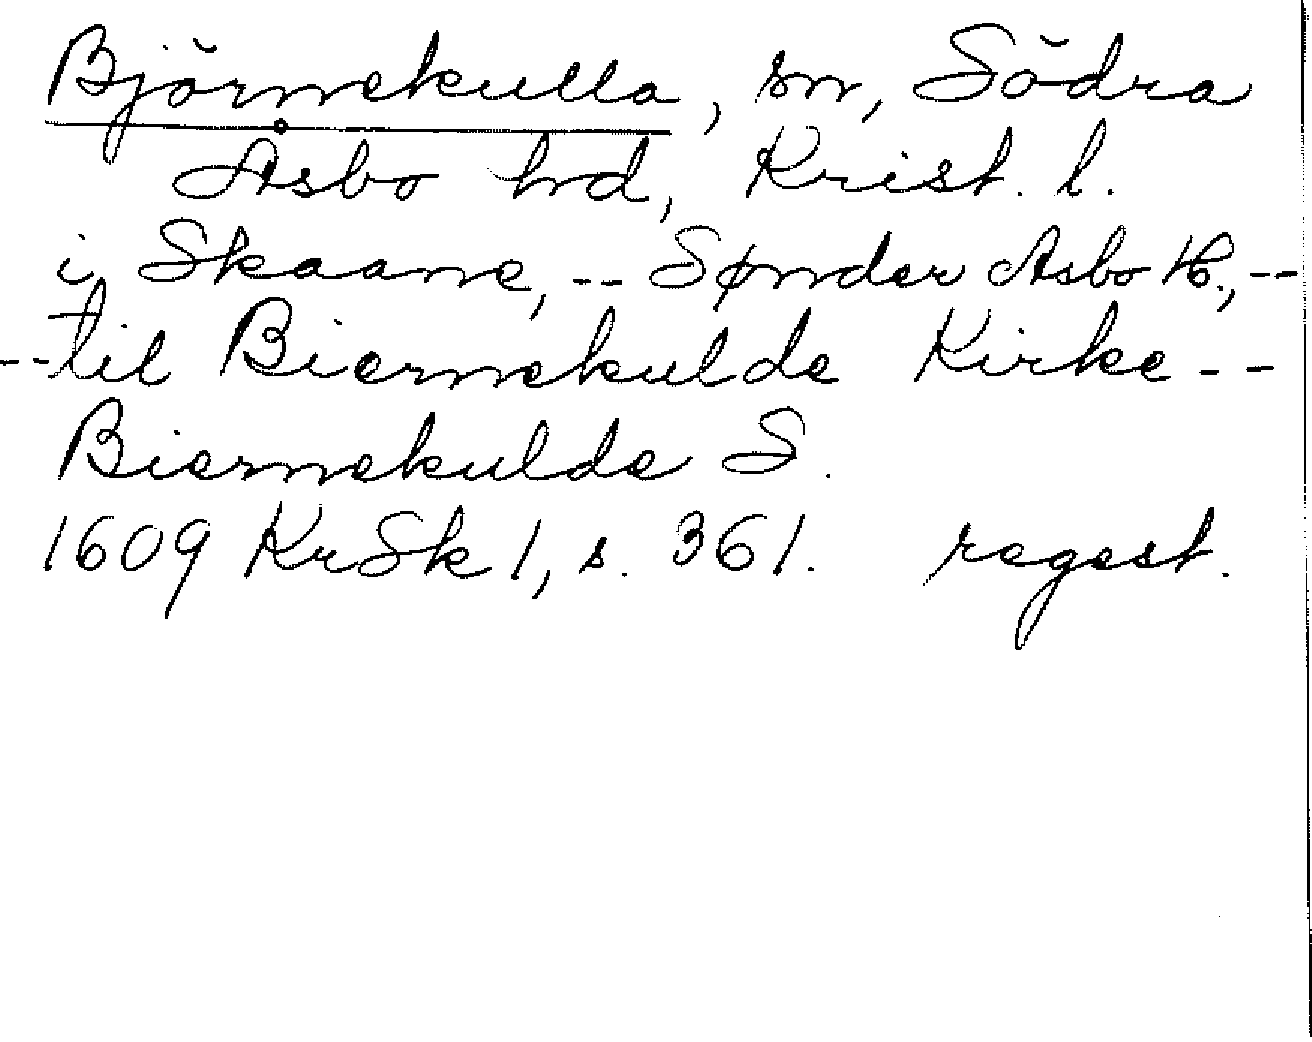 Björnekulla, sn, Södra
Asbo hd, Krist. l.
i Skaane, -- Sønder Asbo H., --
-- til Biernekulde Kirke --
Biernekulde S.
1609 KrSk 1, s. 361. regest.